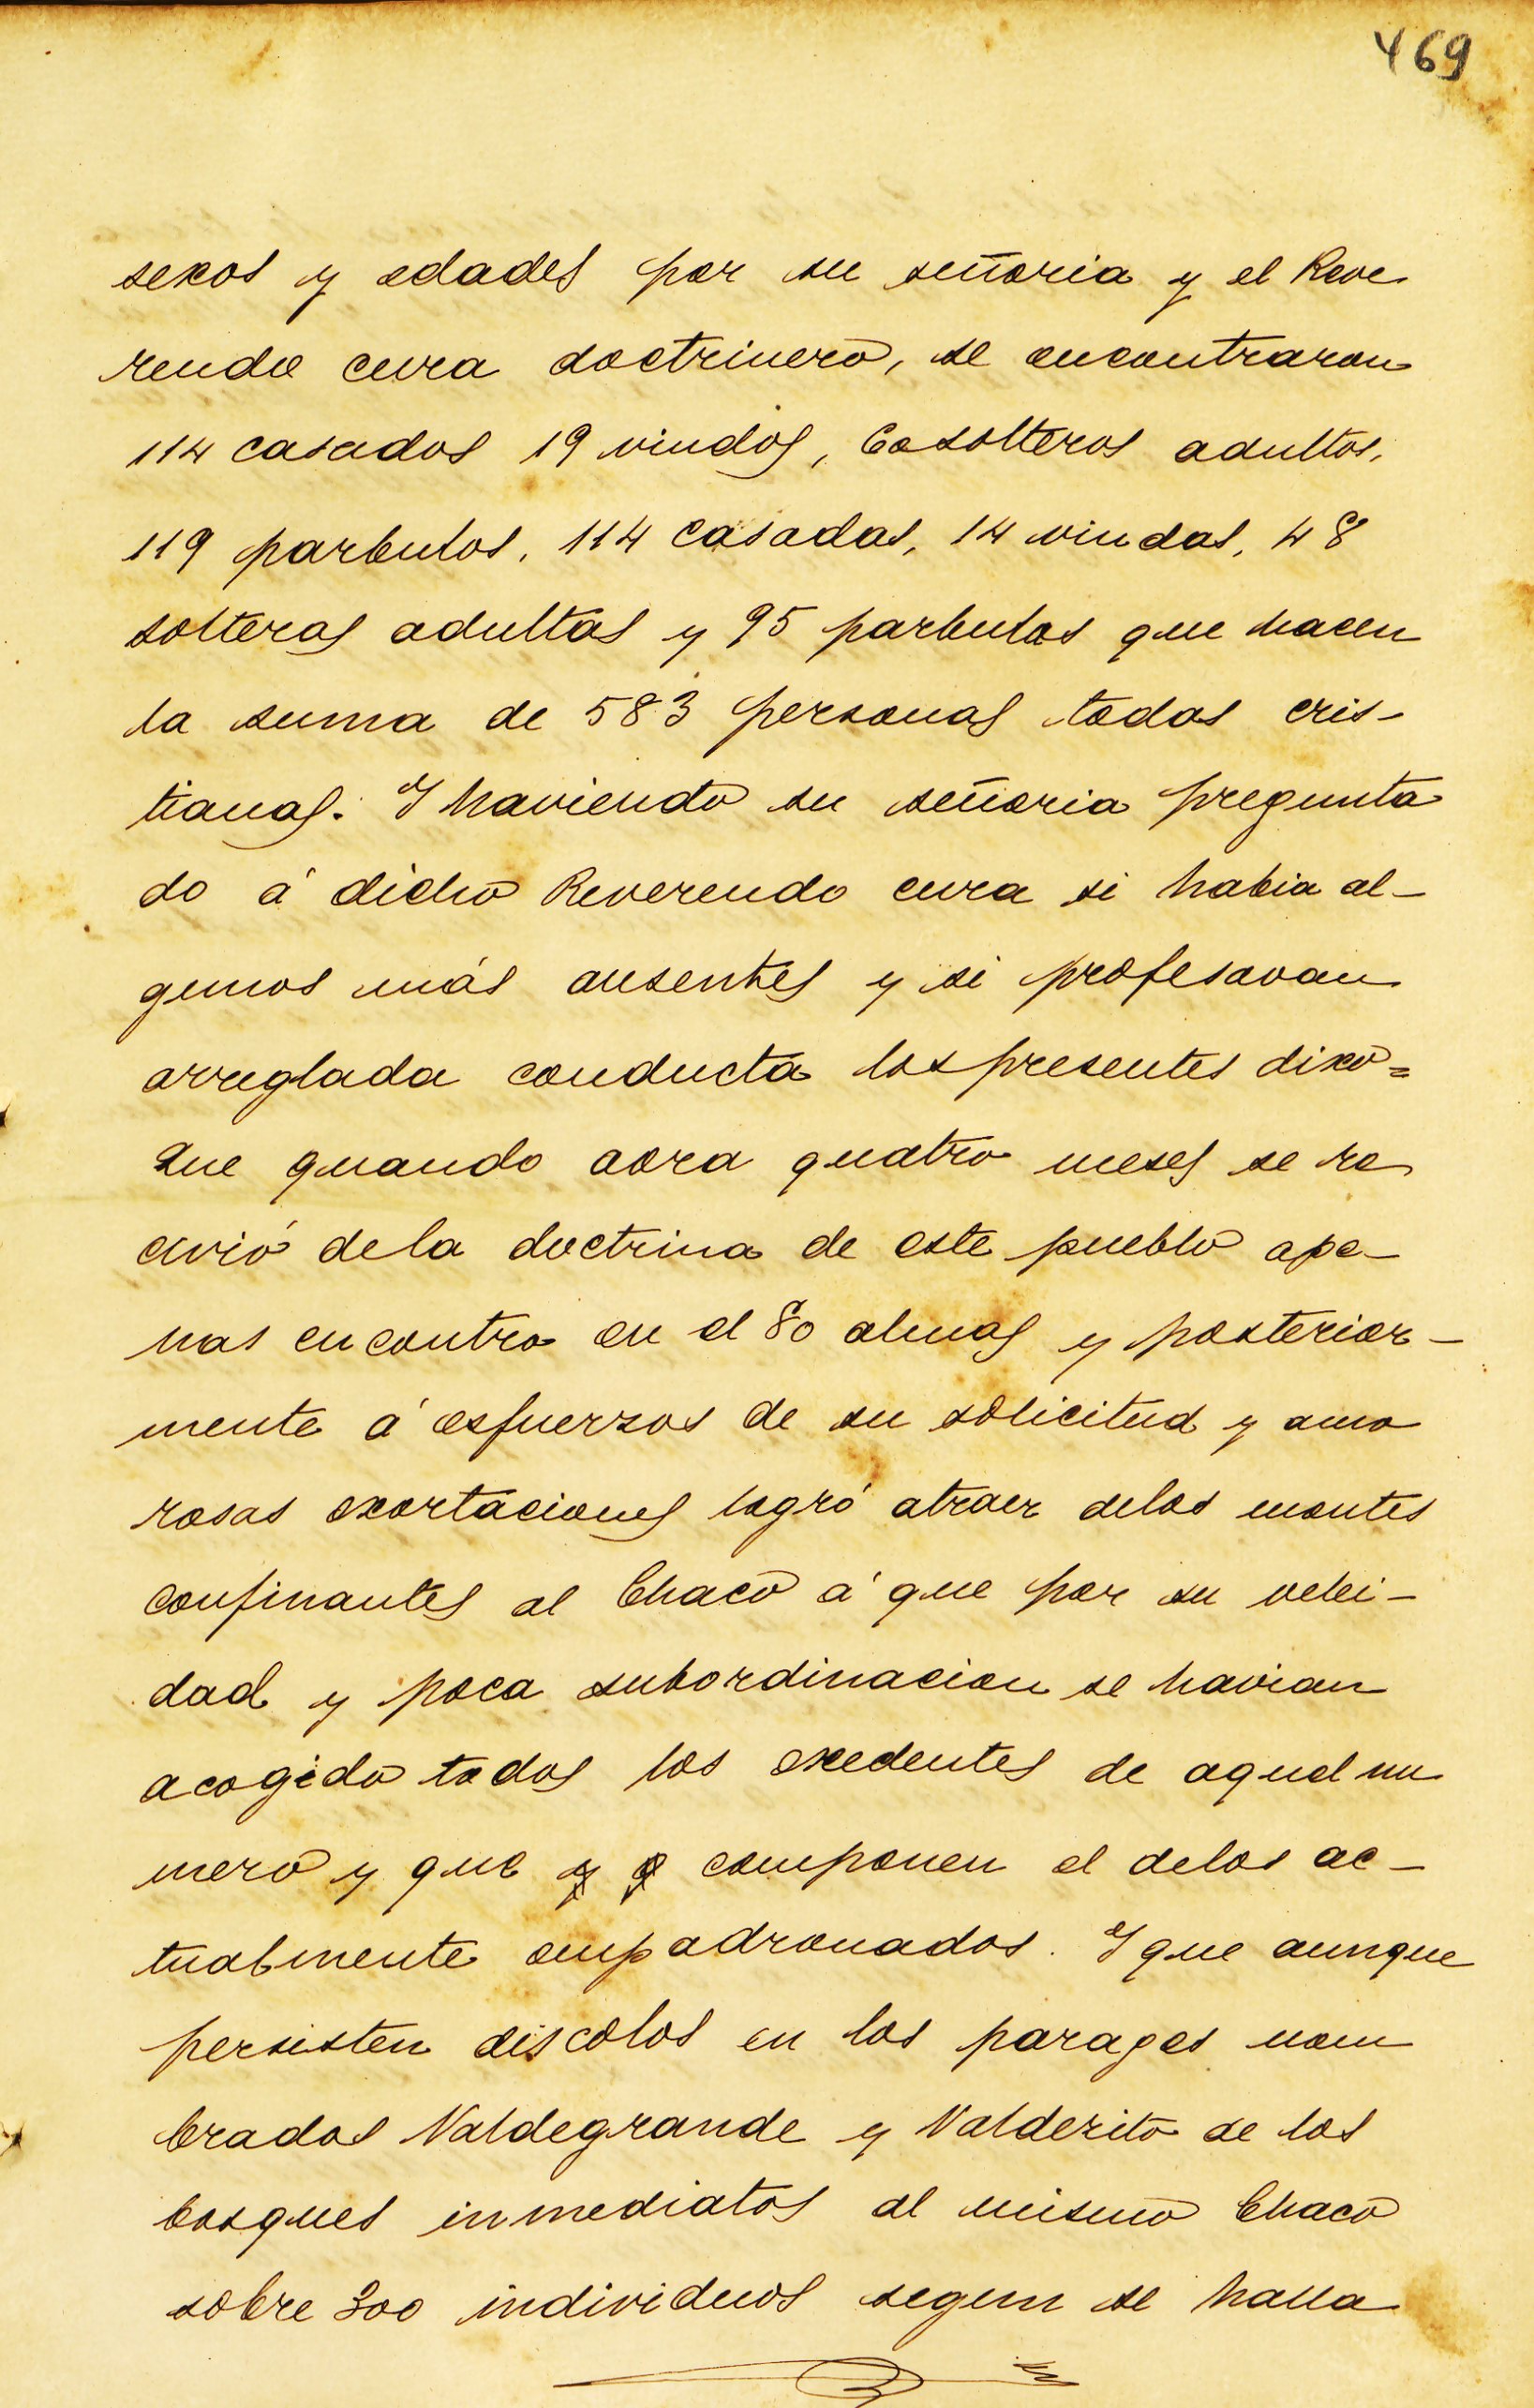 469
sexos y edades por su señoria y el Reve
rendo cura doctrinero, se encontraron
114 casados 19 viudos, 60 solteros adultos,
119 parbulos, 114 casadas, 14 viudas, 48
solteras adultas y 95 parbulas que hacen
la suma de 583 personas todas cris-
tianas. Y haviendo su señoria pregunta
do á dicho Reverendo cura si habia al-
gunos más ausentes y si profesavan
arreglada conducta los presentes dixo=
Que quando aora quatro meses se re
civió de la doctrina de este pueblo ape-
nas encontro en el 80 almas y posterior-
mente á esfuerzos de su solicitud y amo
rosas exortaciones logró atraer delos montes
confinantes al Chaco á que por su velei-
dad y poca subordinacion se havian
acogido todos los exedentes de aquel nu
mero y que componen el delos ac-
tualmente empadronados. Y que aunque
persisten discolos en los parages nom
brados Valdegrande y Valdezito de los
bosques inmediatos al mismo Chaco
sobre 300 individuos segun se halla